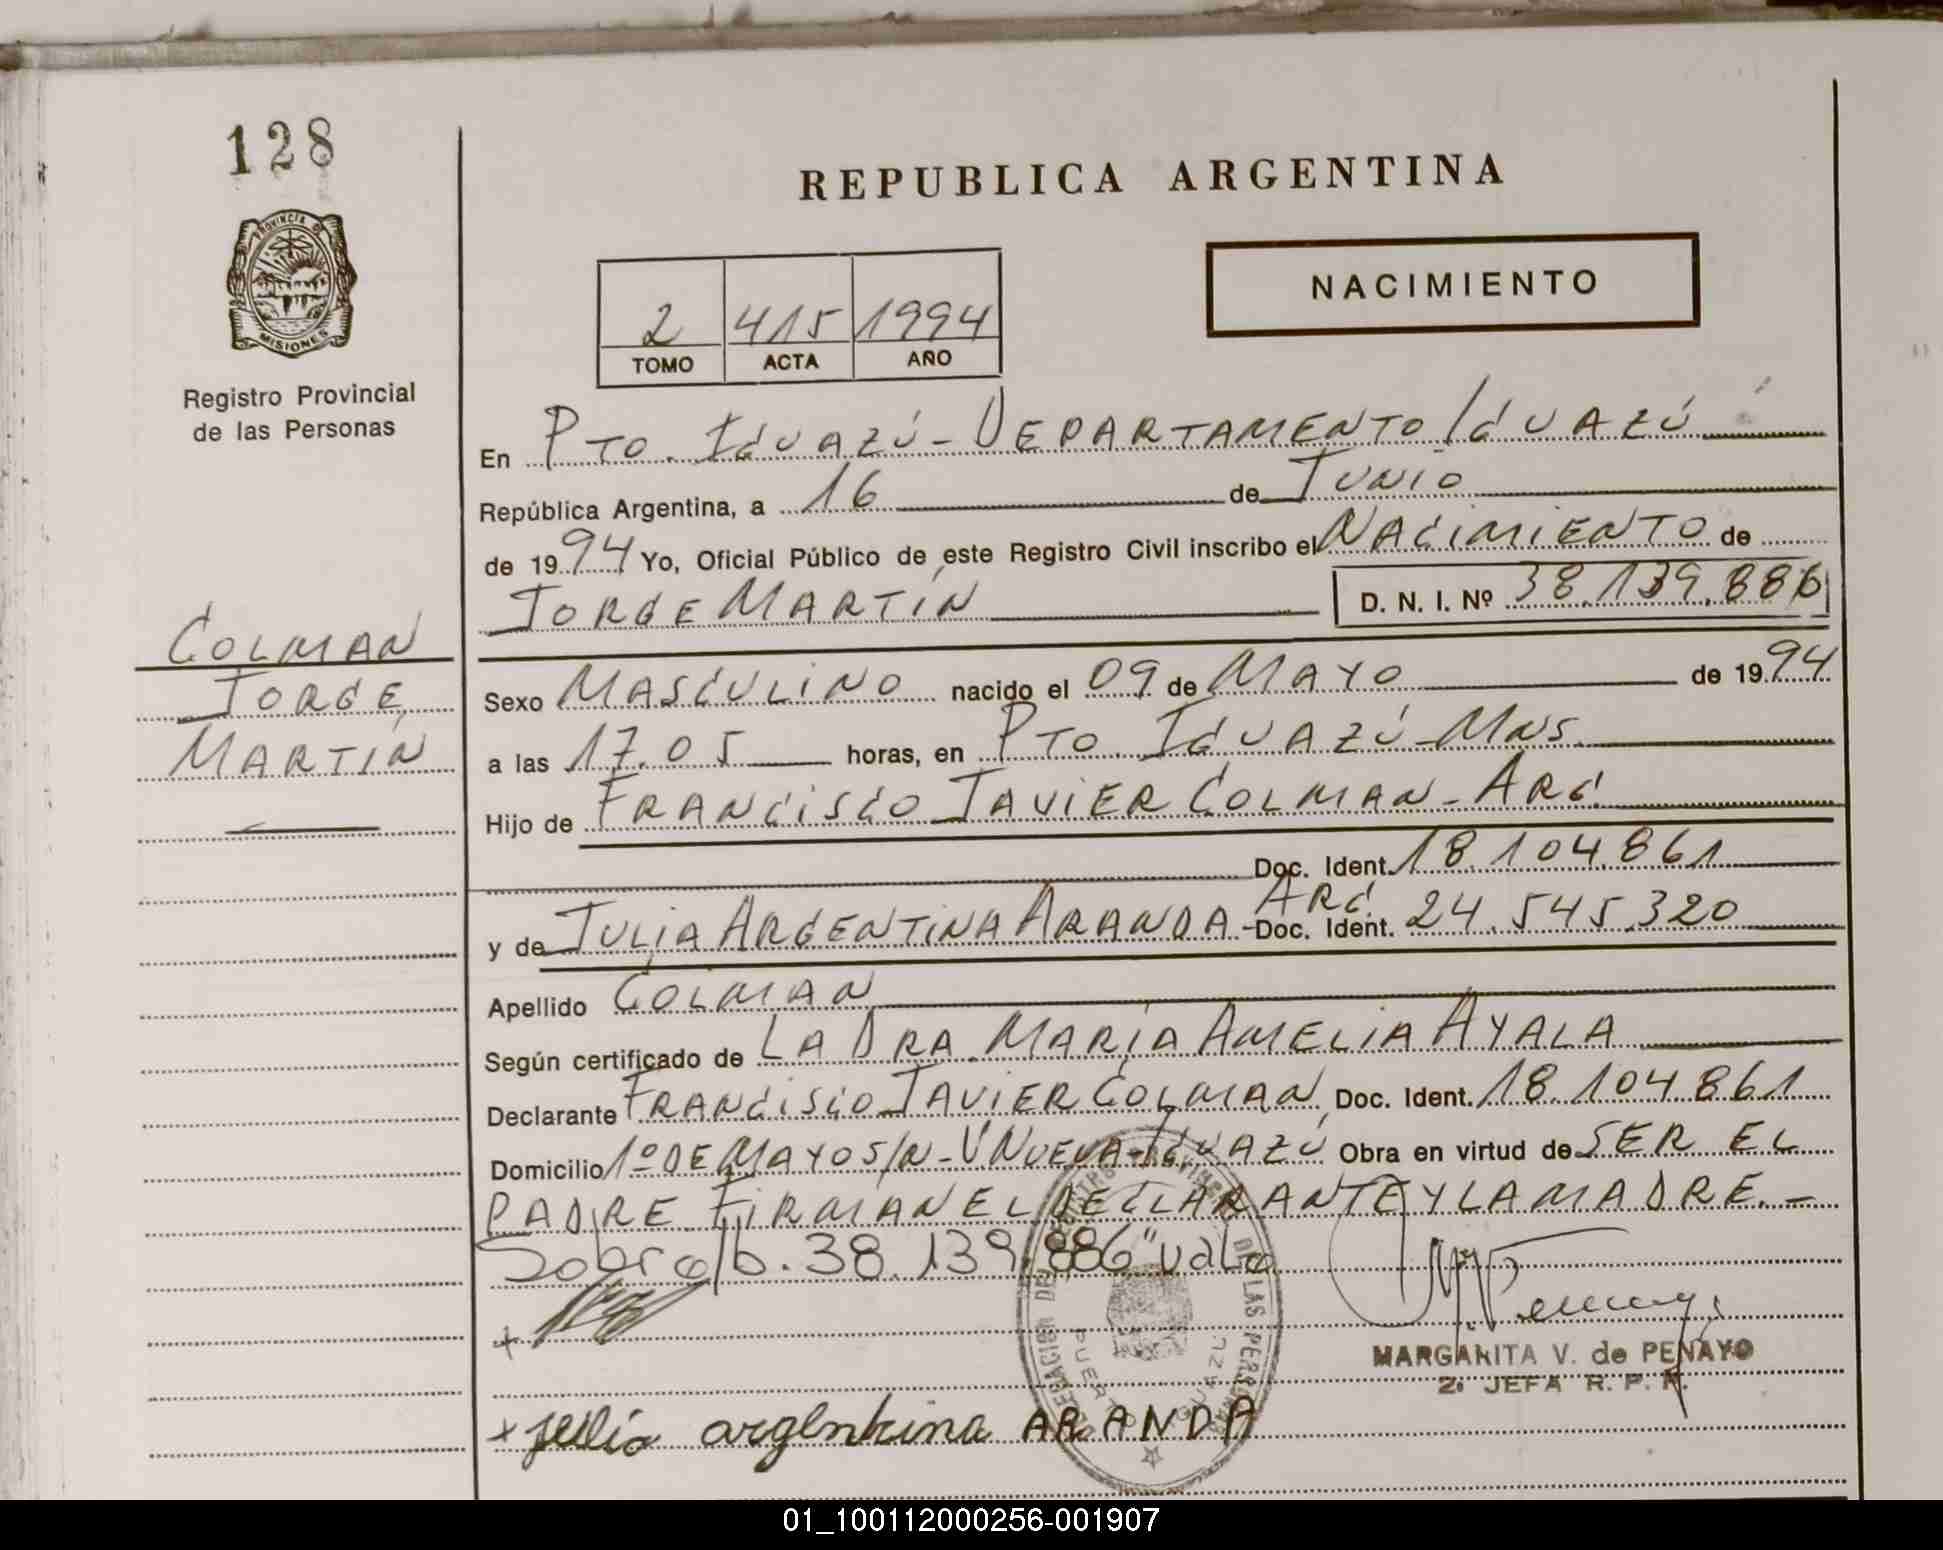 128
REPUBLICA ARGENTINA
PROVINCIA DE
MISIONES
Registro Provincial
de las Personas
NACIMIENTO
2 415 1994
TOMO ACTA AÑO
En PTO. IGUAZÚ - DEPARTAMENTO IGUAZÚ
República Argentina, a 16 de JUNIO
de 1994 Yo, Oficial Público de este Registro Civil inscribo el NACIMIENTO de
JORGE MARTÍN D. N. I. Nº 38.139.886
COLMAN
JORGE
MARTÍN
Sexo MASCULINO nacido el 09 de MAYO de 1994
a las 17.05 horas, en PTO. IGUAZÚ - MNS.
Hijo de FRANCISCO JAVIER COLMAN - ARG.
Doc. Ident. 18.104.861
y de JULIA ARGENTINA ARANDA - ARG. Doc. Ident. 24.545.320
Apellido COLMAN
Según certificado de LA DRA. MARÍA AMELIA AYALA
Declarante FRANCISCO JAVIER COLMAN Doc. Ident. 18.104.861
Domicilio 1º DE MAYO S/N - V NUEVA - IGUAZÚ Obra en virtud de SER EL
PADRE. FIRMAN EL DECLARANTE Y LA MADRE. -
Sobre r/b. 38.139.886" vale
MARGARITA V. de PENAYO
2ª JEFA R. P. P.
+ julia argentina ARANDA
01_100112000256-001907